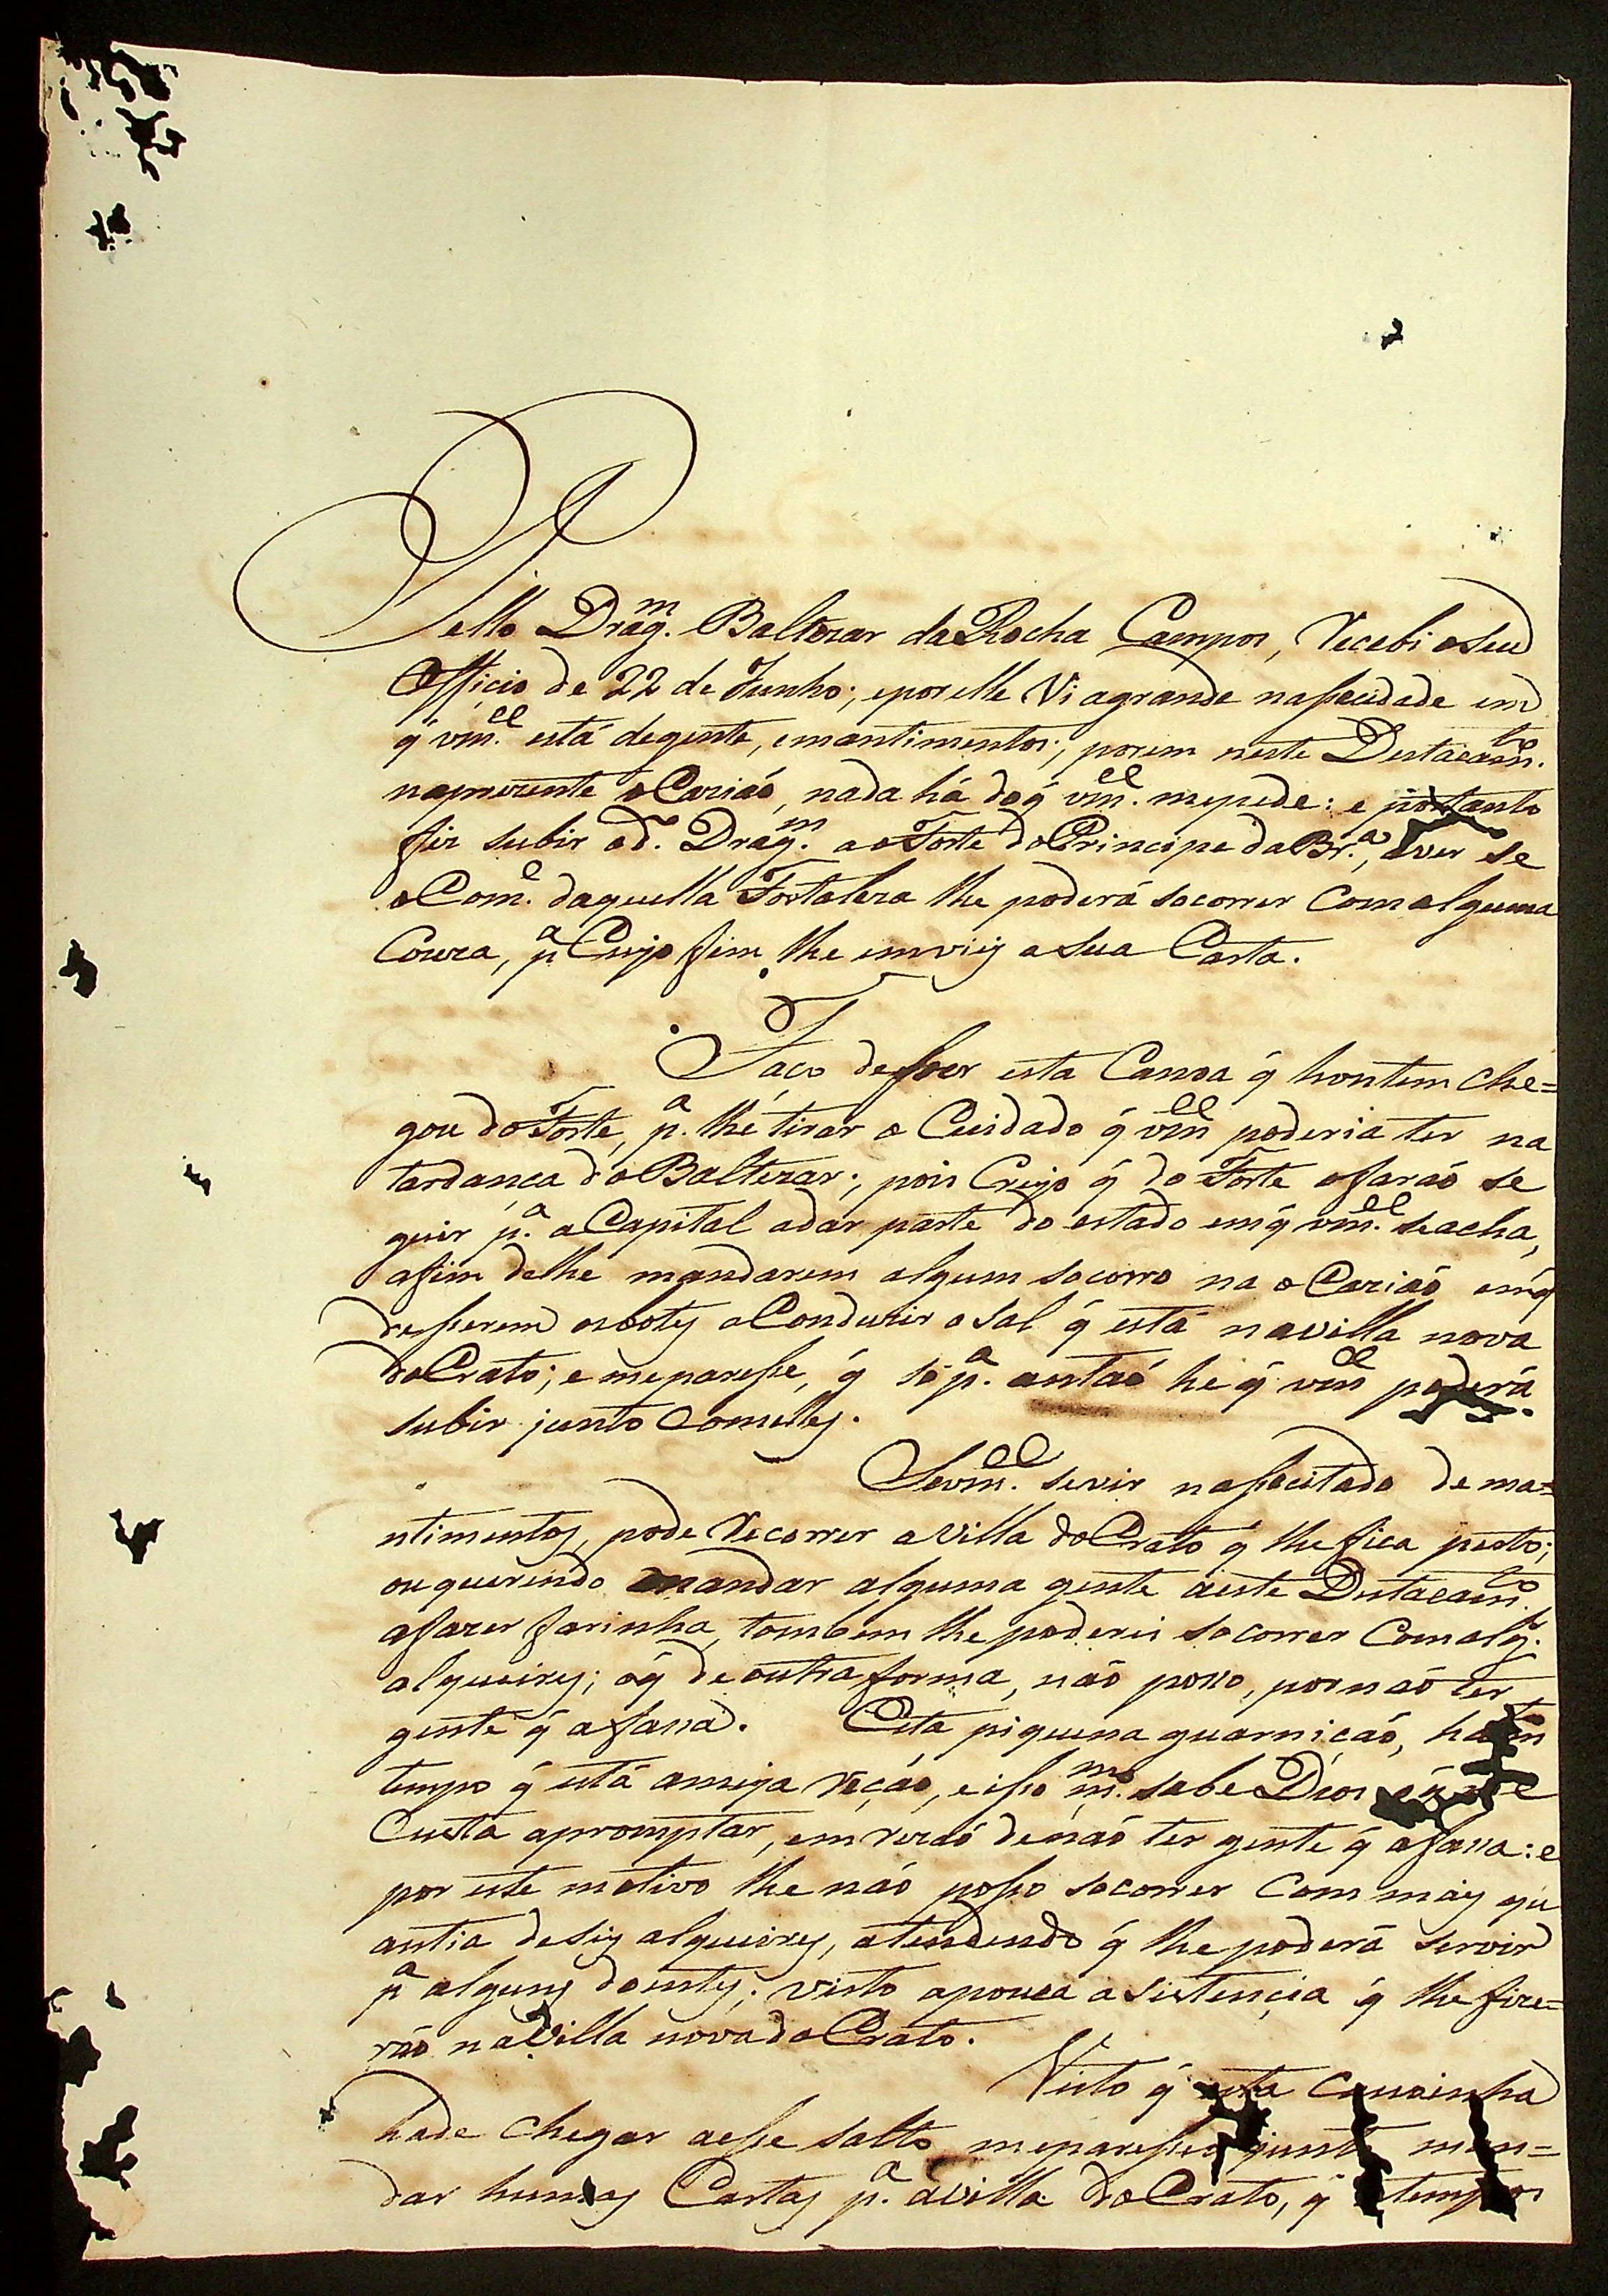 Pello Drag.m Baltezar da Rocha Campos, Recebi oseu
Officio de 22 de Junho; eporelle Vi agrande nasecidade em
q̃ vm.ce está degente, emantimentos; porem neste Destacam.to
naprezente oCaziaõ, nada há doq̃ vm.ce mepede: e portanto
fiz subir od.o Drag.m aoForte doPrincipe daBr.a, aver se
oCom.e daquella Fortaleza lhe poderá socorrer Comalguma
Couza, p.a Cujo fim lhe inviey a sua Carta.
Faço desser esta Canoa q̃ hontem che=
gou doForte, p.a lhe tirar o Cuidado q̃ vm.ce poderia ter na
tardança do Baltezar; pois Creyo q̃ do Forte ofaraõ se
guir p.a aCapital adar parte do estado emq̃ vm.ce seacha,
afim delhe mandarem algum socorro na oCaziaõ emq̃
desserem osbotes aConduzir o sal q̃ está navilla nova
doCrato; e meparesse, q̃ só p.a antaõ he q̃ vm.ce poderá
subir junto comelles.
Sevm.ce sevir nassecitado de ma=
ntimentos, pode Recorrer aVilla doCrato q̃ lhe fica perto;
ouquerendo mandar alguma gente aeste Destacam.to
afazer farinha, tombem lhe poderei socorrer Comalg.s
alqueires; oq̃ de outra forma, naõ posso, pornaõ ter
gente q̃ afassa. Esta piquena guarniçaõ, ha m.to
tempo q̃ está ameya Reçaõ, eisso m.mo sabe Dios oq̃ me
Custa apromptar, em rezaõ denaõ ter gente q̃ afassa: e
por este motivo lhe naõ posso socorrer Com mais qu
antia deSeis alqueires, atendendo q̃ lhe poderá servir
p.a alguns doentes; visto apouca asistencia q̃ lhe fize=
raõ naVilla nova doCrato.
Visto q̃ esta Canoinha
hade chegar aesse salto mepareceo junto man=
dar humas Cartas p.a avilla doCrato, q̃ tempos